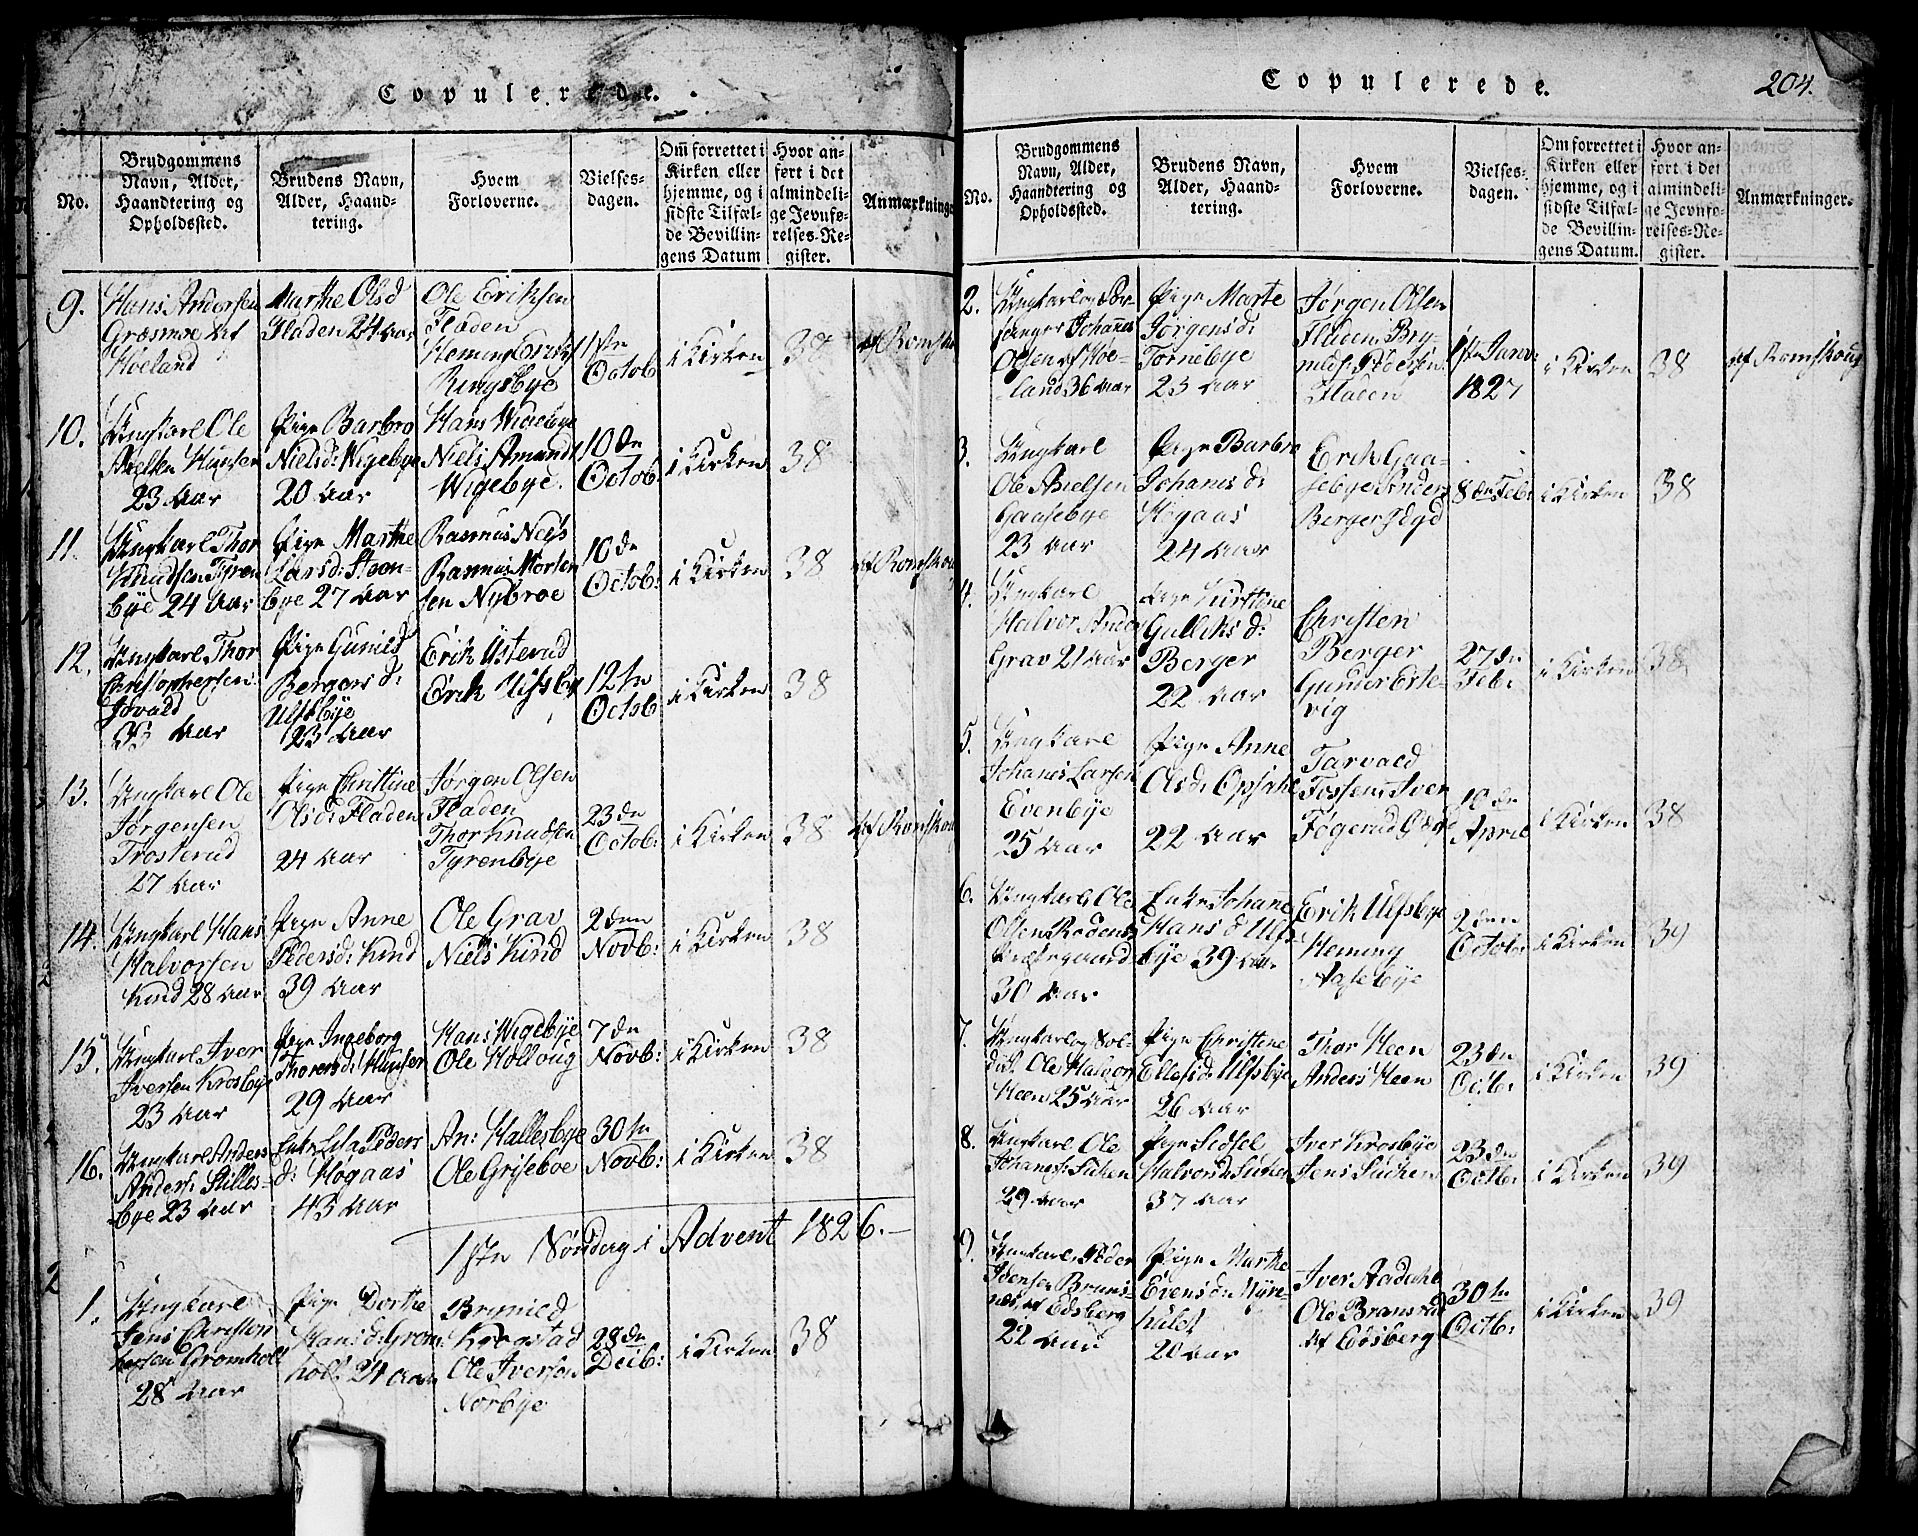 Copulerede.
No.
Brudgommens
Navn, Alder,
Haandtering og
Opholdssted.
Brudens Navn,
Alder, Haand-
tering.
Hvem
Forloverne.
Vielses-
dagen.
Om forrettet i
Kirken eller
hjemme, og i
sidste Tilfæl-
de Bevillin-
gens Datum
Hvor an-
ført i det
almindeli-
ge Jevnfø-
relses-Re-
gister.
Anmærkninger
9.
Hans Andersen
Græsmoe af
Høeland
Marthe Olsd
Fladen 24 Aar
Ole Eriksen
Fladen
Heming Eriks
Ringsbye
1ste
Octob
i Kirken
38
af Romskou
10.
Ungkarl Ole
Nielsen
23 Aar
Pige Barbro
Nielsd: Wigebye
20 Aar
Hans Wigebye
Niels Amund
Wigebye.
10de
Octob:
i Kirken
38
11.
Ungkarl Thor
Knudsen Tyren
bye 24 Aar
Pige Marthe
Larsd: Steen-
bye 27 Aar
Rasmus Neys
Rasmus Morten
sen Nybroe
10de
Octob:
i Kirken
38
af Romskou
12.
Ungkarl Thor
Christophersen
33 Aar
Pige Gunild
Bergersd:
Ulfsbye
23 Aar
Erik Usterud
Erik Ulfsby
12te
Octob
i Kirken
38
13.
Ungkarl Ole
Jørgensen
Trosterud
27 Aar
Pige Christine
Olsd: Fladen
24 Aar
Jørgen Olsen
Fladen
Thor Knudsen
Tyrenbye
23de
Octob:
i Kirken
38
af Romskou
14.
Ungkarl Hans
Halvorsen
Kind 28 Aar
Pige Anne
Pedersd: Kind
39 Aar
Ole Grav
Niels Kind
2den
Novb:
i Kirken
38
15.
Ungkarl Iver
Iversen Krosbye
23 Aar
Pige Ingeborg
Thoresd:
29 Aar
Hans Wigebye
Ole Holtoug
7de
Novb:
i Kirken
38
16.
Ungkarl Anders
Anders: Stilles-
bye 23 Aar
Enke Lisa Peders
d: Høgaas
43 Aar
An: Hallesbye
Ole Griseboe
30te
Novb:
i Kirken
38
1ste Søndag i Advent 1826.
1.
Ungkarl
Jens Christen
Gromholt
28 Aar
Pige Dorthe
Hansd: Grom
holt 24 Aar
Brynild
Krogstad
Ole Iversen
Norbye
28de
Decb:
i Kirken
38
Copulerede.
204.
No.
Brudgommens
Navn, Alder,
Haandtering og
Opholdssted.
Brudens Navn,
Alder, Haand-
tering.
Hvem
Forloverne.
Vielses-
dagen.
Om forrettet i
Kirken eller
hjemme, og i
sidste Tilfæl-
de Bevillin-
gens Datum.
Hvor an-
ført i det
almindeli-
ge Jevnfø-
relses-Re-
gister.
Anmærkninger.
2.
Ungkarl og
Johannes
Olsen af Høe-
land 36 Aar
Pige Marte
Jørgensd:
Tornebye
23 Aar
Jørgen Olsen
Fladen
Pedersen
Fladen
1ste Janv:
1827
i Kirken
38
af Romskoug
3.
Ungkarl
Ole Nielsen
Gaasebye
23 Aar
Pige Barbro
Johanesd:
Høgaas
24 Aar
Erik Gaa-
sebye Anders
Berger
8de Feb:
i Kirken
38
4.
Ungkarl
Halvor Anders
Grav 21 Aar
Pige
Gulliksd:
Berger
22 Aar
Christen
Berger
Gunder Erte-
vig
27de
Feb:
i Kirken
38
5.
Ungkarl
Johanes Larsen
Evenbye
25 Aar
Pige Anne
Olsd: Opsahl
22 Aar
Tarvald
Fossen Iver
Fogerud
10de
April
i Kirken
38
6.
Ungkarl Ole
Olsen
Præstegaard
30 Aar
Enke Johanne
Hansd Ulfs-
bye 39 Aar
Erik Ulfsbye
Heming
Aasebye
2den
Octob:
i Kirken
39
7.
Ungkarl og Sol-
dat Ole Halvor
Heen 25 Aar
Pige Christine
Ellefsd: Ulfsbye
26 Aar
Thor Heen
Anders Heen
23de
Octb:
i Kirken
39
8.
Ungkarl Ole
Johanes:
29 Aar
Pige Sidsel
Halvorsd:
37 Aar
Iver Krosbye
Jens
23de
Octb:
i Kirken
39
9.
Ungkarl Peder
af Edsberg
22 Aar
Pige Marthe
Evensd:
20 Aar
Iver Aadahl
Ole Bransrud
af Edsberg
30te
Octb:
i Kirken
39